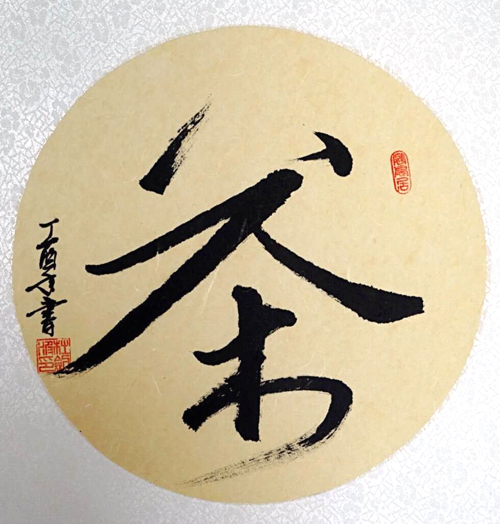 茶
丁酉年書